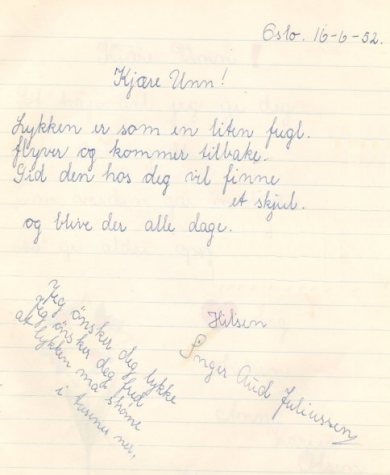 Oslo. 16-6-52.
Kjære Unn!
Lykken er som en liten fugl.
flyver og kommer tilbake.
Gid den hos deg vil finne
et skjul.
og blive der alle dage.
Jeg ønsker deg lykke
Jeg ønsker deg fred
at lykken må
i tusener ned,
Hilsen
Inger Aud Juliussen